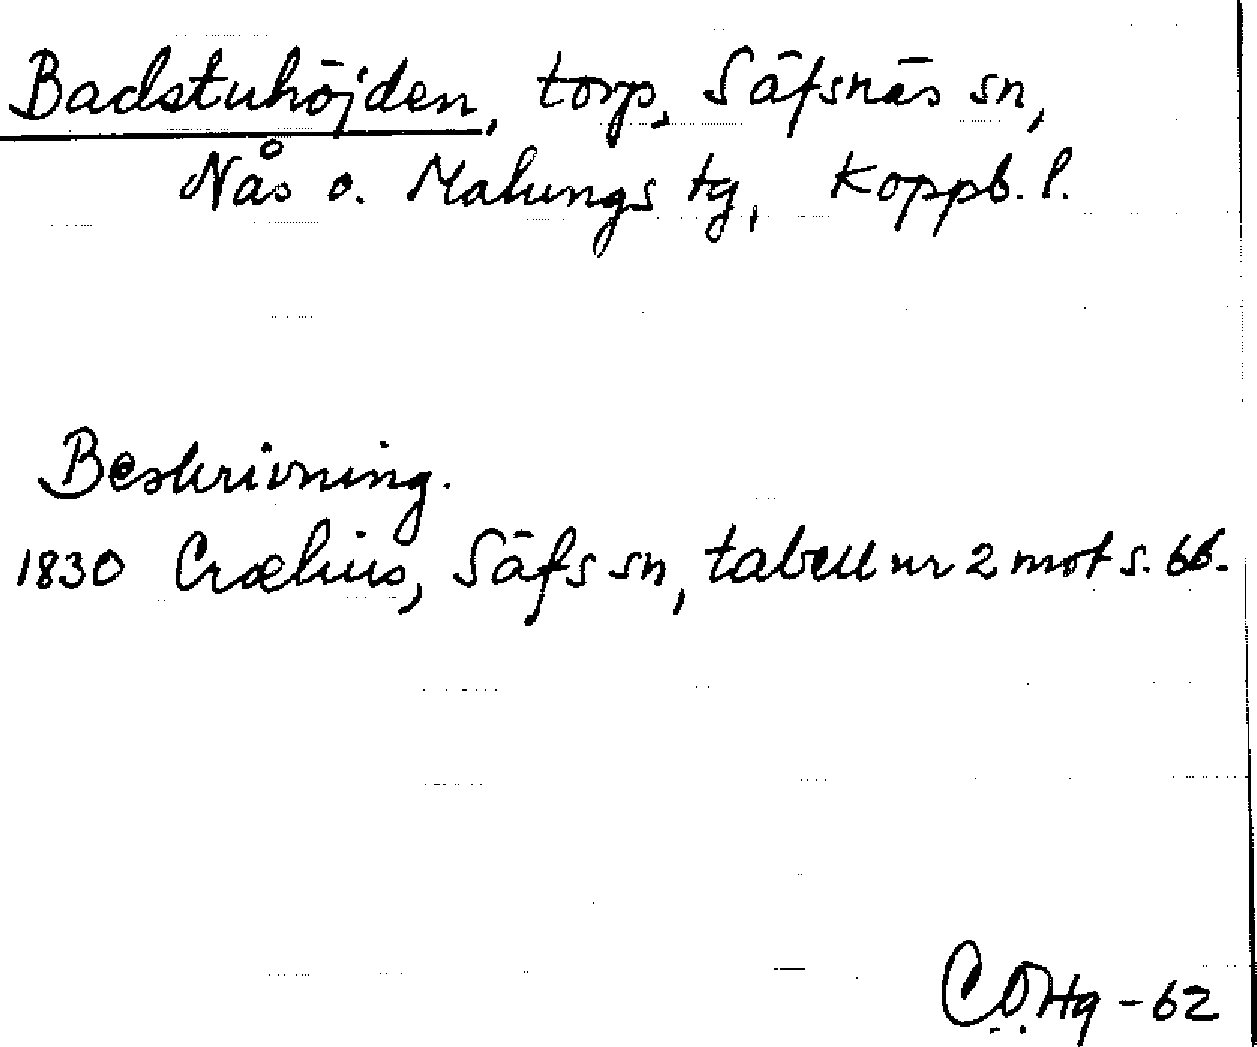 Badstuhöjden, torp, Säfsnäs sn,
Nås o. Malungs tg, Koppb. l.
Beskrivning.
1830 Crælius, Säfs sn, tabell nr 2 mot s. 66.
CÖHg - 62